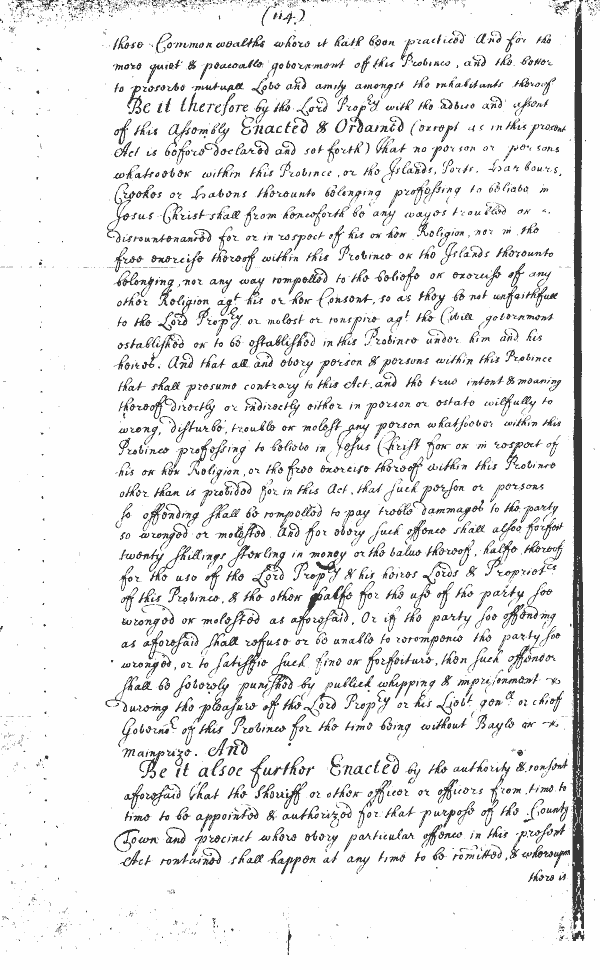 (114.)
those Commonwealths where it hath been practiced And for the
more quiet & peaceable government of this Province, and the better
to preserve mutuall Love and amity amongst the inhabitants thereof
Be it therefore by the Lord Prop:ry with the advise and assent
of this Assembly Enacted & Ordained (except as in this present
Act is before declared and set forth) That no person or persons
whatsoever within this Province, or the Islands, Ports, Harbours,
Creekes or Havens thereunto belonging professing to believe in
Jesus Christ shall from henceforth be any wayes troubled or
discountenanced for or in respect of his or her Religion, nor in the
free exercise thereof within this Province or the Islands thereunto
belonging, nor any way compelled to the beliefe or exercise off any
other Religion agt his or her Consent, so as they be not unfaithfull
to the Lord Prop:ry or molest or conspire agt. the Civill government
established or to be established in this Province under him and his
heires. And that all and every person & persons within this Province
that shall presume contrary to this Act and the true intent & meaning
thereoff directly or indirectly either in person or estate willfully to
wrong, disturbe, trouble or molest any person whatsoever within this
Province professing to believe in Jesus Christ for or in respect of
his or her Religion, or the free exercise thereof within this Province
other than is provided for in this Act, that such person or persons
so offending shall be compelled to pay treble dammages to the party
so wronged or molested. And for every such offence shall alsoe forfeit
twenty shillings sterling in money or the value thereof, halfe thereof
for the use of the Lord Prop:ry & his heires Lords & Propriet:rs
of this Province, & the other halfe for the use of the party soe
wronged or molested as aforesaid, Or if the party soe offending
as aforesaid shall refuse or be unable to recompence the party soe
wronged, or to satisfie such fine or forfeiture, then such offender
shall be severely punished by publick whipping & imprisonment
dureing the pleasure of the Lord Prop:ry or his Lievt. gen:ll or chief
Govern:r of this Province for the time being without Bayle or
mainprize. And
Be it alsoe further Enacted by the authority & consent
aforesaid That the Sheriff or other officer or officers from time to
time to be appointed & authorized for that purpose of the County
Town and precinct where every particular offence in this present
Act contained shall happen at any time to be comitted, & whereupon
there is